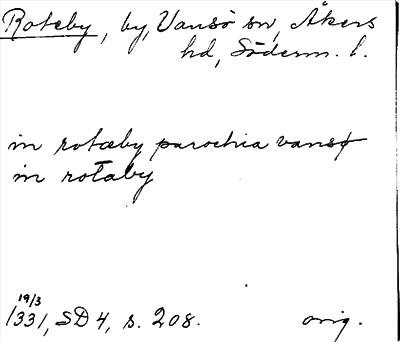 Roteby, by, Vansö sn, Åkers
hd, Söderm. l.
in rotæby parochia vansø
in rotaby
19/3
1331, SD 4, s. 208.
orig.